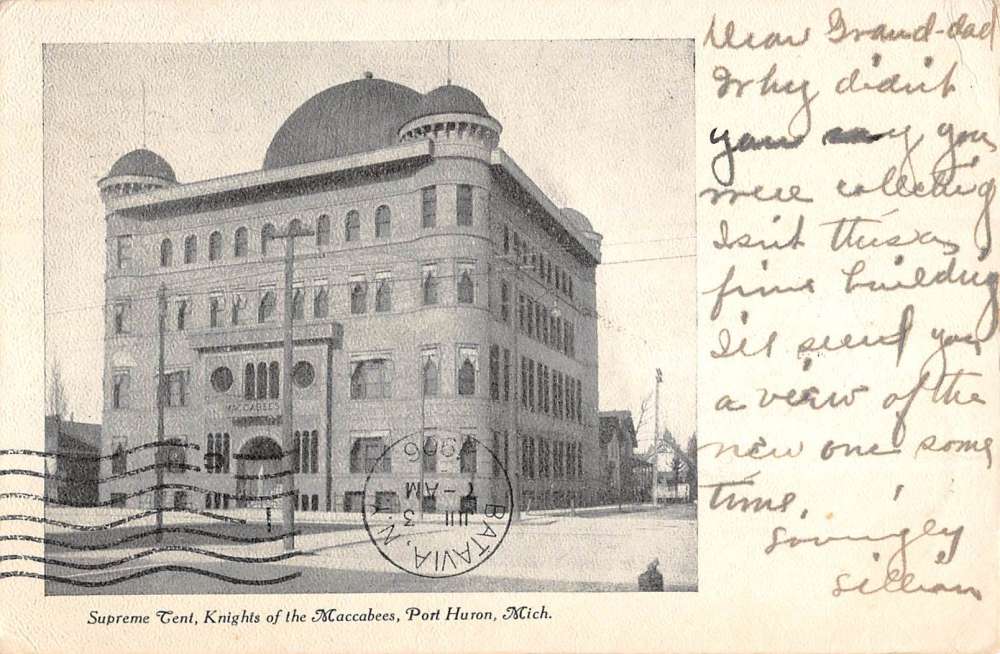 Dear Grand-dad
Why didn't
you say you
were collecting
Isn't this a
fine building
I'll send you
a view of the
new one some
time.
Lovingly
Lillian
MACCABEES
BATAVIA, N.Y.
JUL 3
7-AM
1906
Supreme Tent, Knights of the Maccabees, Port Huron, Mich.